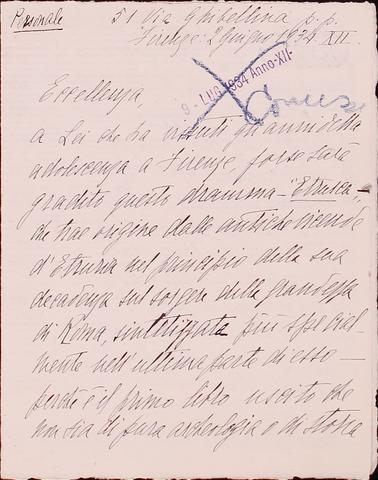 Personale
51 Via Ghibellina p.p.
Firenze: 2 giugno 1934 XII.
9 - LUG. 1934 Anno-XII-
Eccellenza
a Lei che ha vissuti gli anni della
adolescenza a Firenze, forse sarà
gradito questo dramma - "Etrusca",
che trae origine dalle antiche vicende
d'Etruria nel principio della sua
decadenza sul sorgere della grandezza
di Roma, sintetizzata più special-
mente nell'ultima parte di esso -
perché è il primo libro uscito che
non sia di pura archeologia o di storia